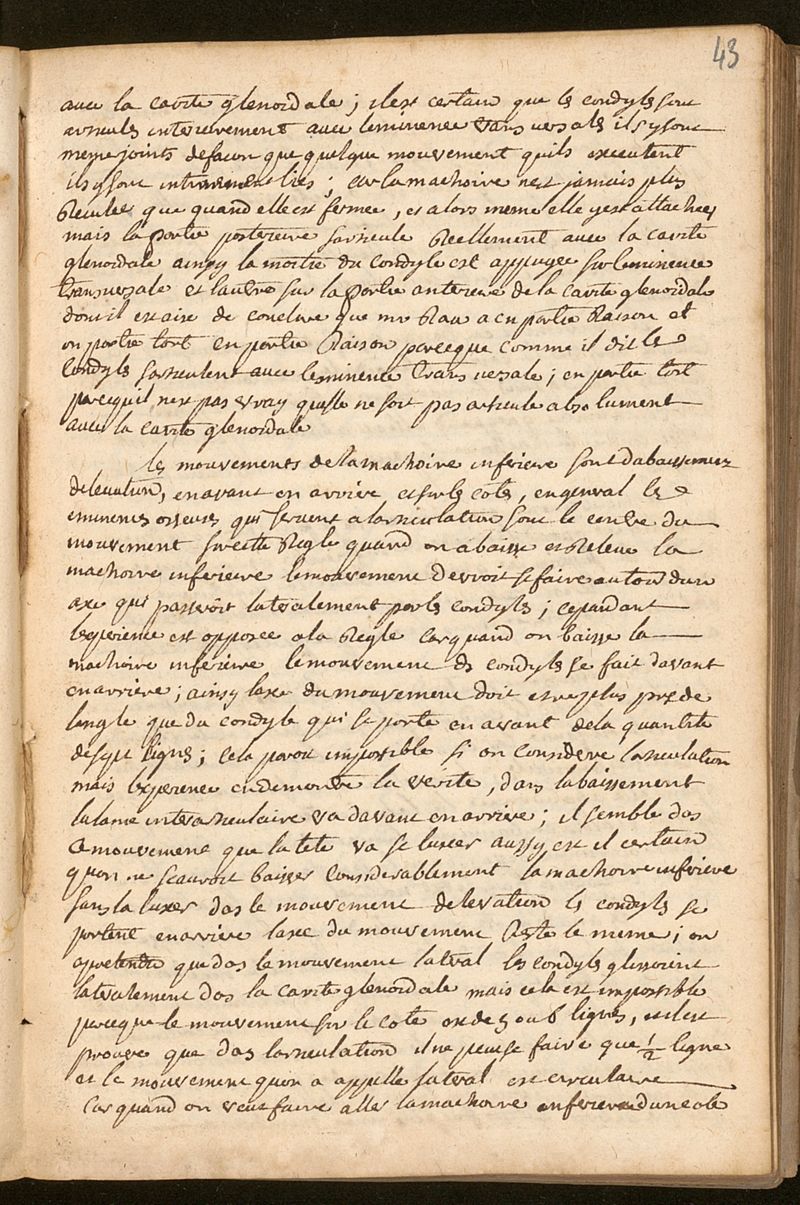 43
avec la cavité glenoidale ; il est certain que les condyles sont
articules interieurement avec leminence transversale ils y sont
meme joints de facon que quelque mouvement quils executent
ils y sont intimement lies ; car la machoire nest jamais plus
Reculee que quand elle est fermee, et alors meme elle y est attachee,
mais la partie posterieure sarticule Reellement avec la cavite
glenoidale ainsy la moitie du condyle est appuyee sur leminence
transversale et lautre sur la partie anterieure de la cavite glenoidale
dou il est aise de conclure que mr Rau a en partie Raison et
en partie tort en partie Raison parceque comme il dit les
Condyls sarticulent avec leminence transversale ; en partie tort
parcequil nest pas vray quelle ne soit pas articule absolument
avec la cavite glenoidale
les mouvements de la machoire inferieure sont dabaissement
delevation, en avant en arriere et sur les cotes, en general les
eminences osseuses qui servent a larticulation sont le centre du
mouvement sur cette Regle quand on abaisse et Releve la
machoire inferieure le mouvement devroit se faire autour dun
axe qui passeroit lateralement par les condyls ; cependant
lexperience est opposee a la Regle car quand on baisse la
machoire inferieure le mouvement des condyls se fait davant
en arriere ; ainsy laxe du mouvement doit etre plus pres de
langle que du condyle qui se porte en avant de la quantite
de sept lignes ; cela paroit impossible si on considere larticulation
mais lexperience en demontre la verite, dans labaissement
la lame interarticulaire va davant en arriere ; il semble das
ce mouvement que la tete va se luxer aussy est il certain
quon ne scauroit baisser considerablement la machoire inferieure
sans la luxer das le mouvement delevation les condyls se
portent en arriere laxe du mouvement Reste le meme ; on
a pretendu que das le mouvement lateral les condyls glissoient
lateralement das la cavite glenoidale mais cela est impossible
parceque le mouvement sur le cote est de 5 ou 6 lignes, et il est
prouve que das larticulation il ne peut se faire que ½ ligne
et le mouvement quon a appelle lateral est circulaire
Car quand on veut faire aller la machoire inferieure dun cote